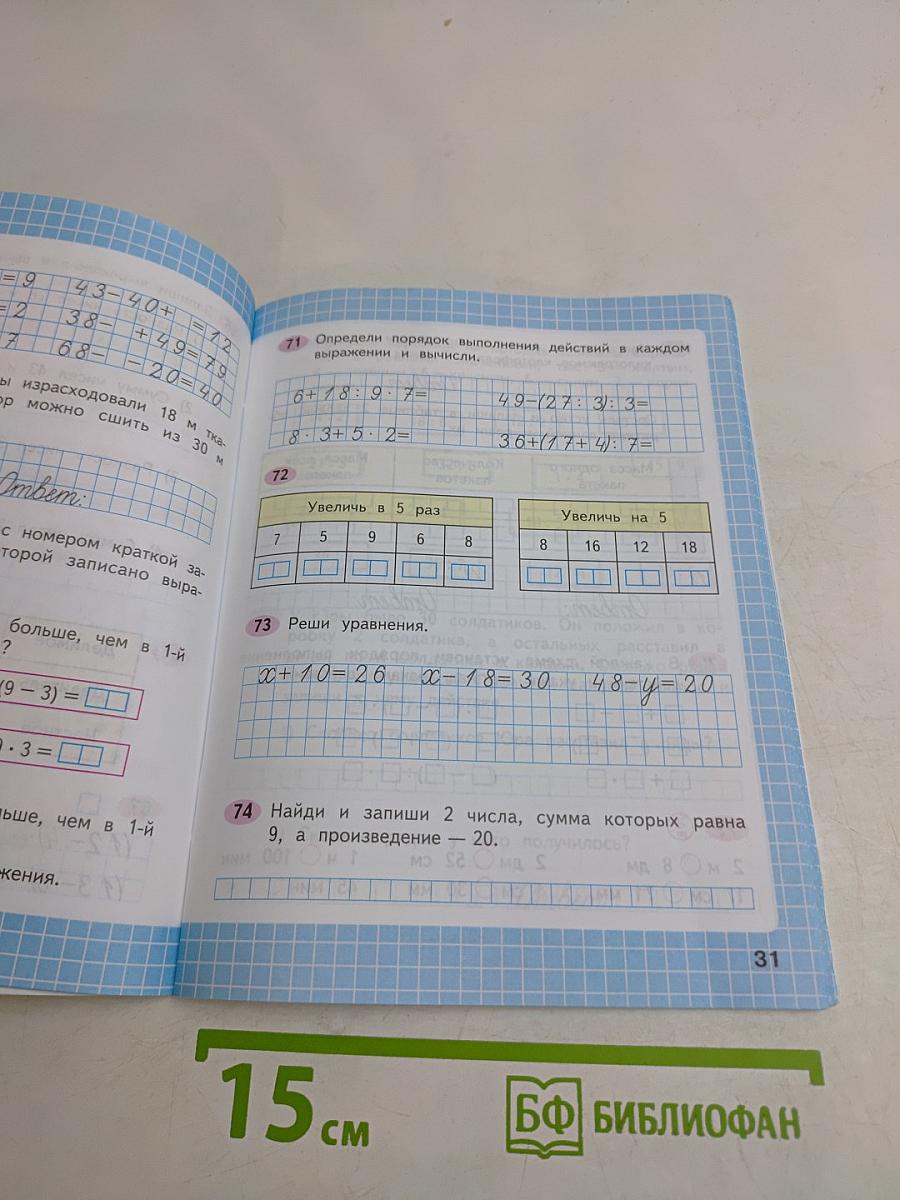 = 9 43-40+ =12
= 2 38- +49=79
7 68- -20=40
израсходовали 18 м тка-
можно сшить из 30 м
Ответ:
с номером краткой за-
записано выра-
больше, чем в 1-й
?
(9 – 3) =
· 3 =
чем в 1-й
71 Определи порядок выполнения действий в каждом
выражении и вычисли.
6+18:9·7= 49-(27:3):3=
8·3+5·2= 36+(17+4):7=
72
Увеличь в 5 раз
7 5 9 6 8
Увеличь на 5
8 16 12 18
73 Реши уравнения.
x+10=26 x-18=30 48-y=20
74 Найди и запиши 2 числа, сумма которых равна
9, а произведение — 20.
31
15 см
БФ БИБЛИОФАН